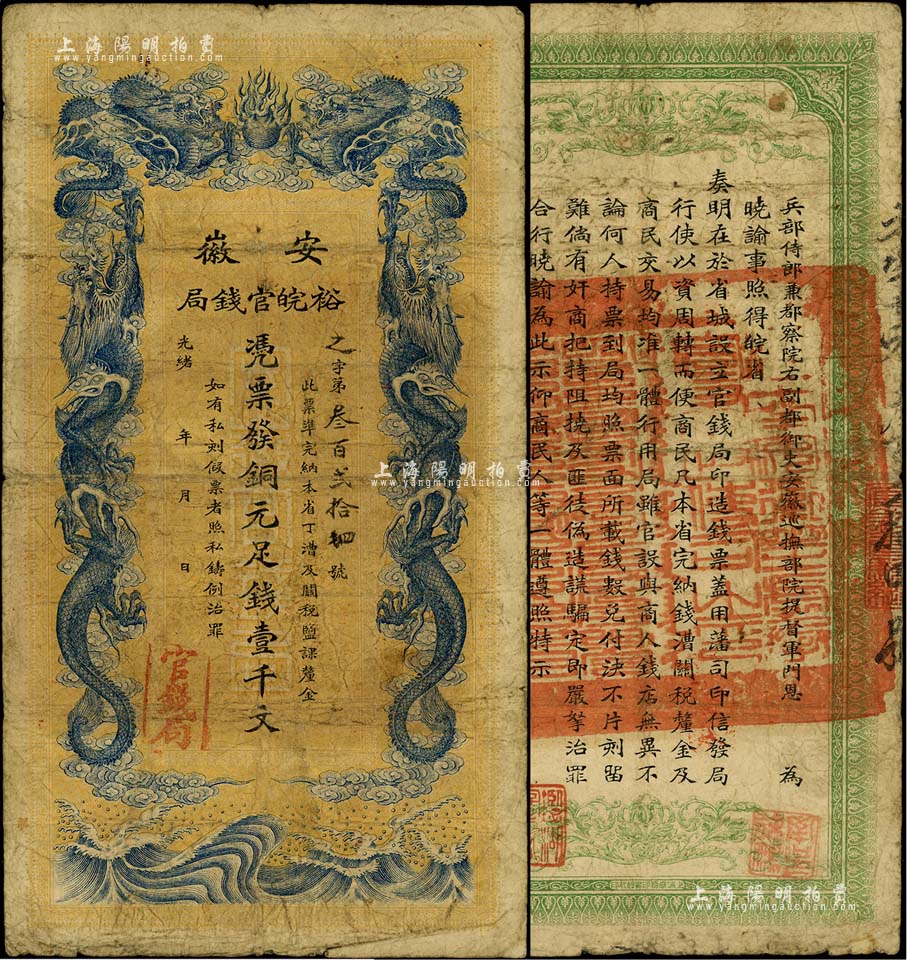 上海陽明拍賣
www.yangmingauction.com
安徽
裕皖官錢局
之字第叁百弍拾四號
此票準完納本省丁漕及關稅鹽課釐金
憑票發銅元足錢壹千文
如有私刻假票者照私鑄例治罪
光緒 年 月 日
官錢局
兵部侍郎兼都察院右副都御史安徽巡撫部院提督軍門恩 為
曉諭事照得皖省
奏明在於省城設立官錢局印造錢票蓋用藩司印信發局
行使以資周轉而便商民凡本省完納錢漕關稅釐金及
商民交易均准一體行用局雖官設與商人錢店無異不
論何人持票到局均照票面所載錢數兌付決不片刻留
難倘有奸商把持阻撓及匪徒偽造謊騙定即嚴拏治罪
合行曉諭為此示仰商民人等一體遵照特示
上海陽明拍賣
www.yangmingauction.com
上海陽明拍賣
www.yangmingauction.com